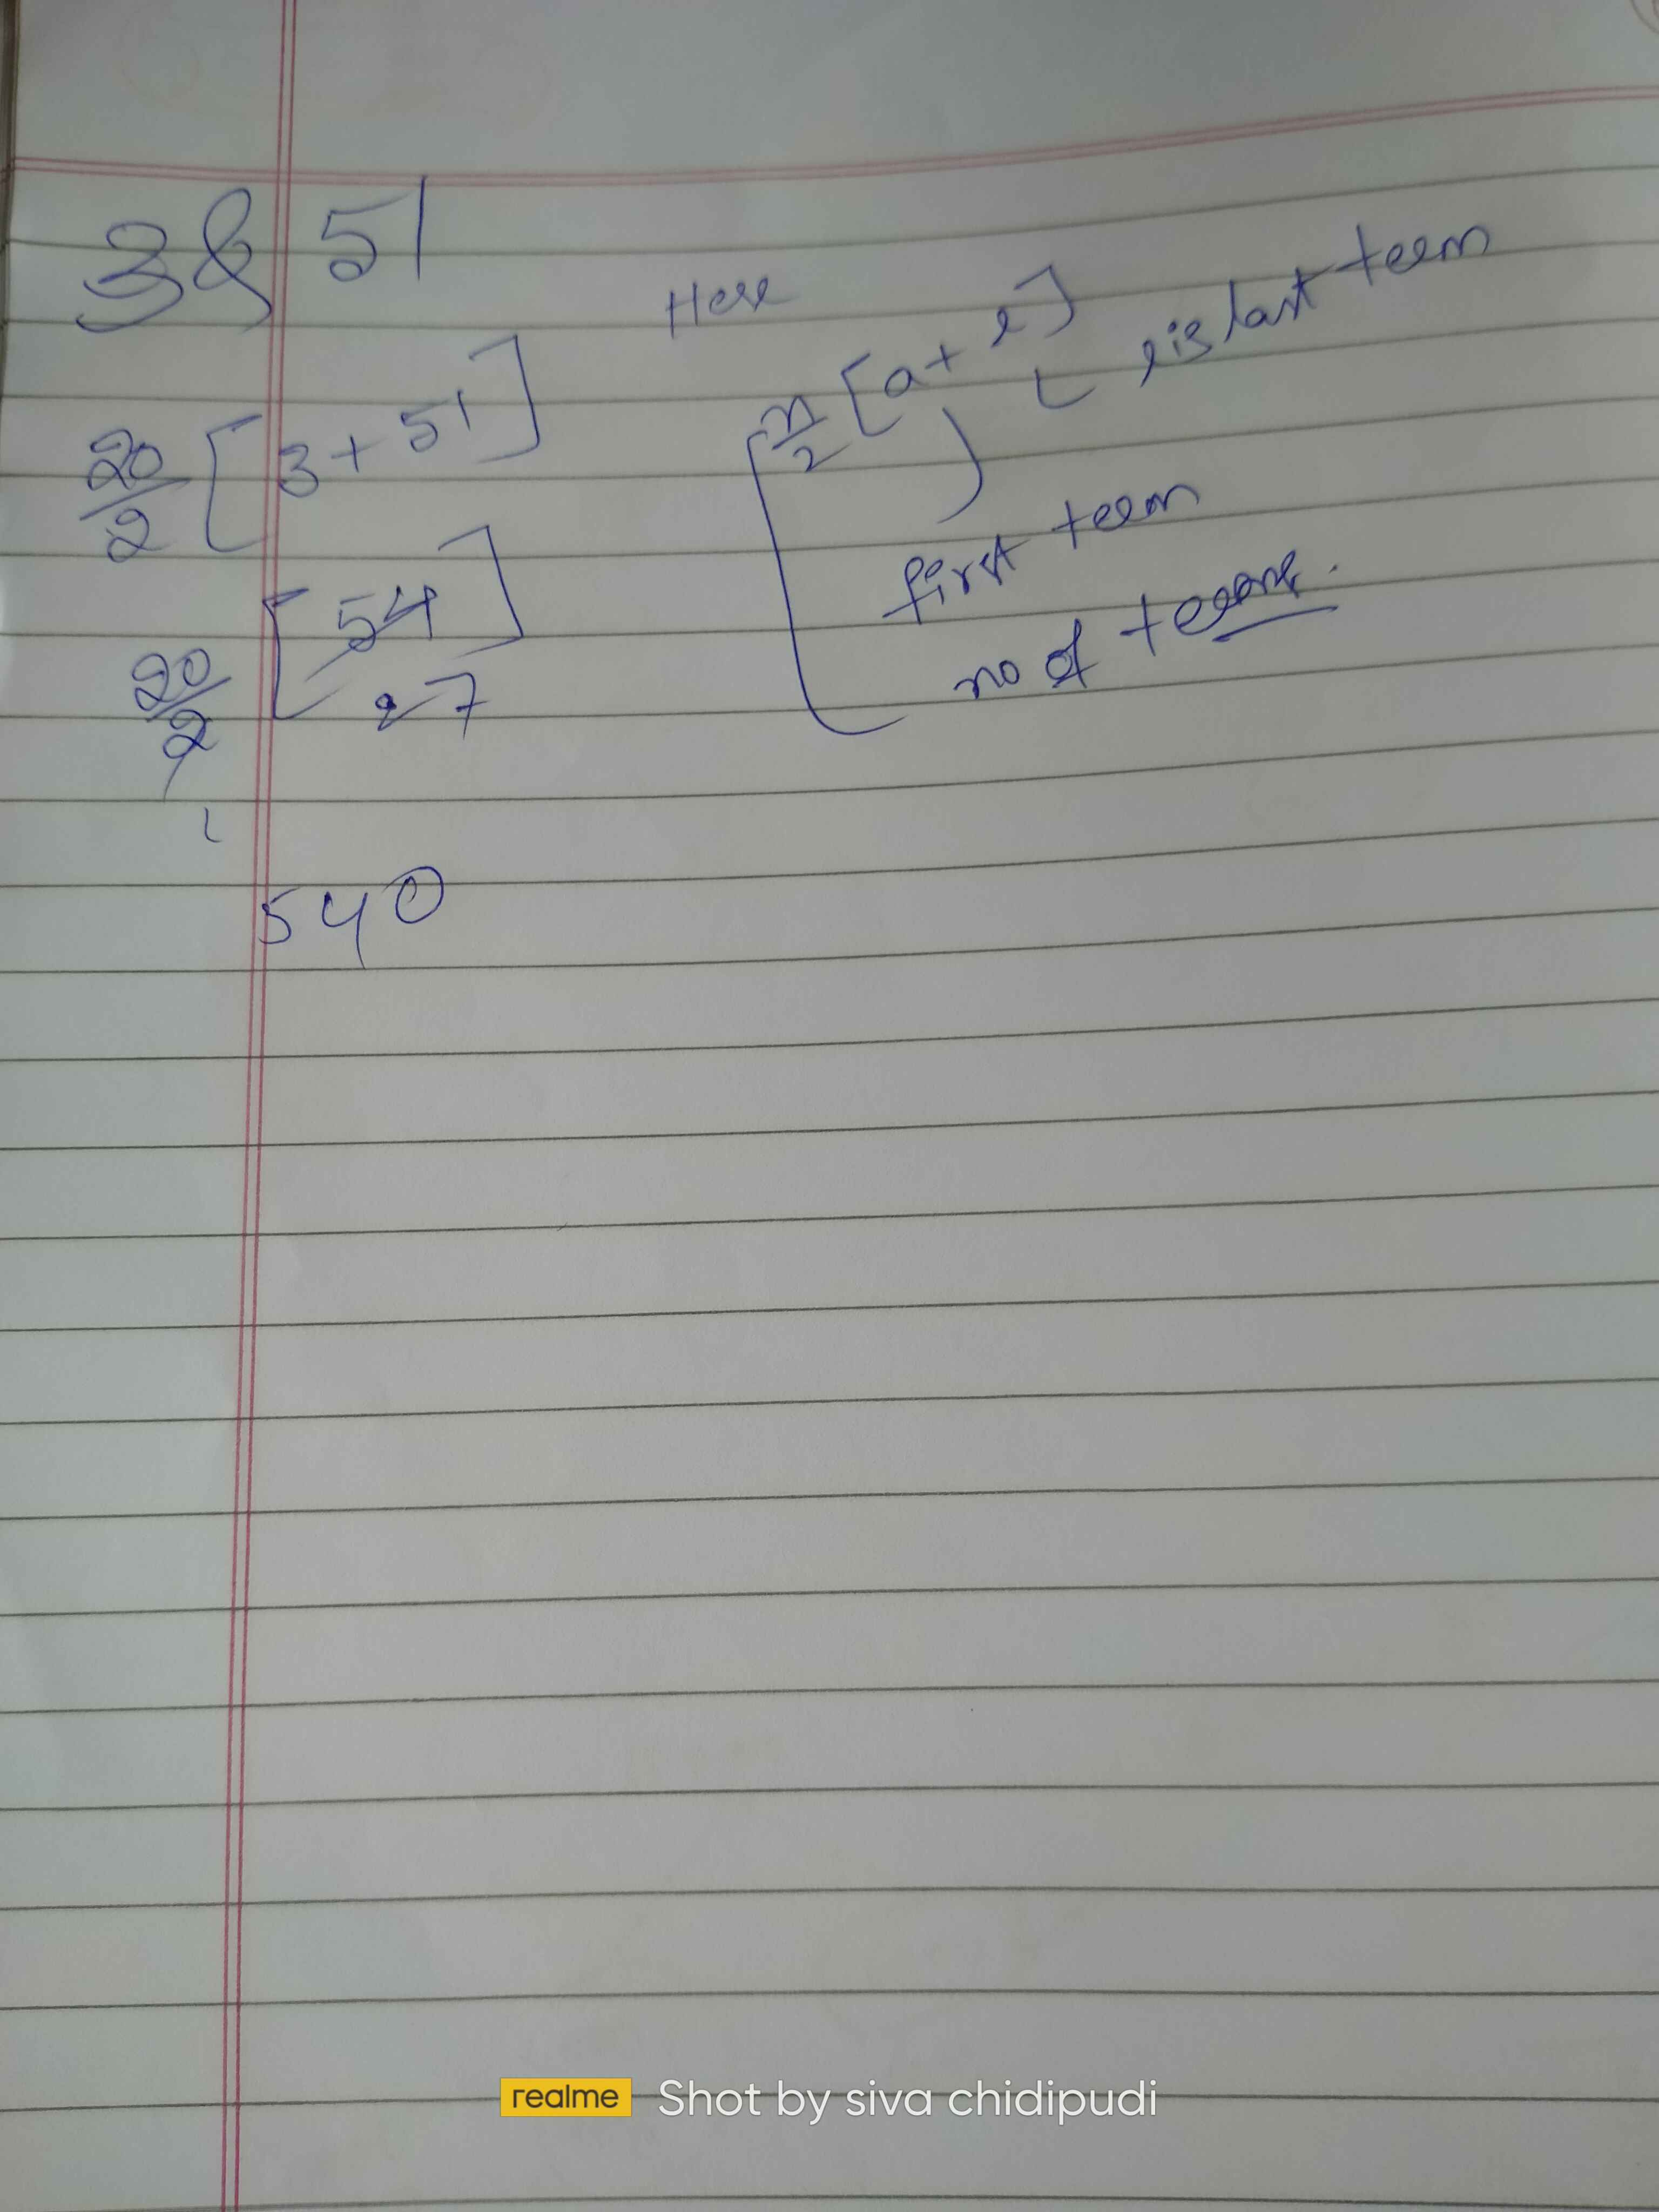 3 & 51
Here
n/2 [a + l]
l is last term
20/2 [3 + 51]
first term
20/2 [54]
27
no of terms.
1
540
realme Shot by siva chidipudi